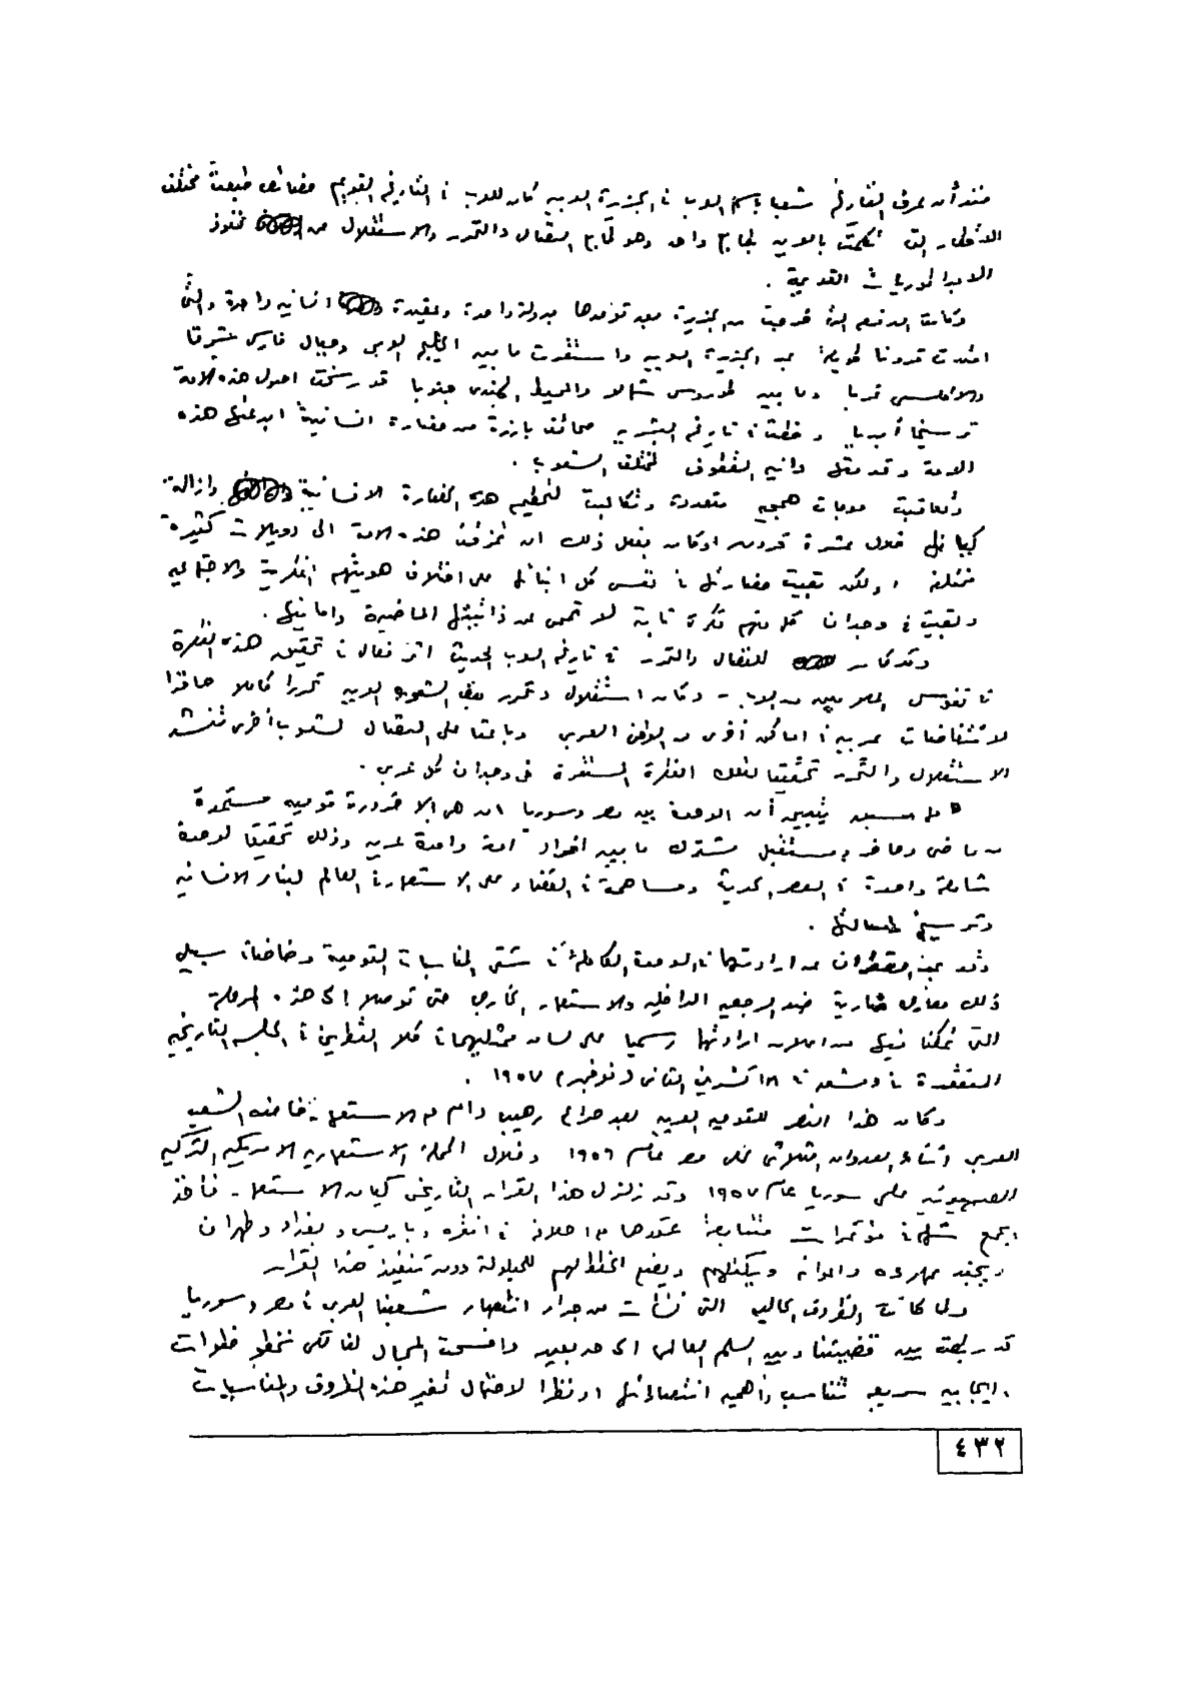 منذ أن عرف التاريخ شعبا باسم العرب في الجزيرة العربية كان للعرب في التاريخ القديم خصائص طبعت مختلف
الأقطار التي تكلمت بالعربية بطابع واحد وهو طابع النضال والتحرر والاستقلال من نفوذ
الامبراطوريات القديمة .
وكانت الدفعة التي خرجت من الجزيرة بعد توحدها بدولة واحدة وعقيدة انسانية واحدة والتي
امتدت قرونا طويلة عبر الجزيرة العربية واستقرت ما بين الخليج العربي وجبال فارس شرقا
والأطلسي غربا وما بين طوروس شمالا والمحيط الهندي جنوبا قد رسخت اصول هذه الامة
ترسيخا أبديا وخطت في تاريخ البشرية صحائف بارزة من حضارة انسانية ابدعتها هذه
الامة وقدمتها دانية القطوف لمختلف الشعوب .
وتعاقبت موجات همجية متعددة وتكالبت لتحطيم هذه الحضارة الانسانية وازالة
كيانها خلال عشرة قرون وكان بفعل ذلك ان تمزقت هذه الامة الى دويلات كثيرة
مختلفة ، ولكن بقيت حضارتها في نفس كل ابنائها على اختلاف هويتهم الفكرية والاجتماعية
وبقيت في وجدان كل منهم فكرة ثابتة لا تمحى عن ذاتيتها الماضية وامانيها .
وقد كان للنضال والتحرر في تاريخ العرب الحديث اثر فعال في تحقيق هذه الفكرة
في نفوس المصريين من العرب - وكان استقلال وتحرر بعض الشعوب العربية تحررا كاملا حافزا
لانتفاضات عربية في اماكن أخرى من الوطن العربي وباعثا على النضال لشعوب أخرى تنشد
الاستقلال والتحرر تحقيقا لتلك الفكرة المستقرة في وجدان كل عربي .
يتبين أن الوحدة بين مصر وسوريا ان هي إلا ضرورة قومية مستمدة
من ماضي وحاضر ومستقبل مشترك ما بين افراد امة واحدة عربية وذلك تحقيقا لوحدة
شاملة واحدة في العصر الحديث ومساهمة في القضاء على الاستعمار في العالم لبناء الانسانية
وترسيخ رسالتها .
وقد عبر القطران عن ارادتهما في الوحدة الكاملة في شتى المناسبات القومية وخاضا في سبيل
ذلك معارك ضارية ضد الرجعية الداخلية والاستعمار الخارجي حتى توصلا إلى هذه المرحلة
التي تمكنا فيها من اعلان ارادتهما رسميا على لسان ممثليهما في كلا القطرين في الجلسة التاريخية
المنعقدة في دمشق في ١٨ تشرين الثاني ( نوفمبر ) ١٩٥٧ .
وكان هذا النصر للقومية العربية بعد صراع رهيب دام مع الاستعمار خاضه الشعب
العربي أثناء العدوان الثلاثي على مصر عام ١٩٥٦ وخلال الحملة الاستعمارية الامريكية التركية
الصهيونية على سوريا عام ١٩٥٧ وقد زلزل هذا القرار التاريخي كيان الاستعمار فأخذ
يجمع شمله في مؤتمرات متتابعة عقدها مع احلافه في انقره وباريس وبغداد وطهران
ويجند جهوده واعوانه ويكتلهم ويضع الخطط لهم للحيلولة دون تنفيذ هذا القرار
ولما كانت الظروف الحالية التي نشأت من جراء انتصار شعبنا العربي في مصر وسوريا
قد ربطت بين قضيتنا وبين السلم العالمي الى حد بعيد وافسحت المجال لنا لكي نخطو خطوات
ايجابية سريعة تتناسب وأهمية انتصاراتنا ونظرا لاحتمال تغير هذه الظروف والمناسبات
٤٣٢